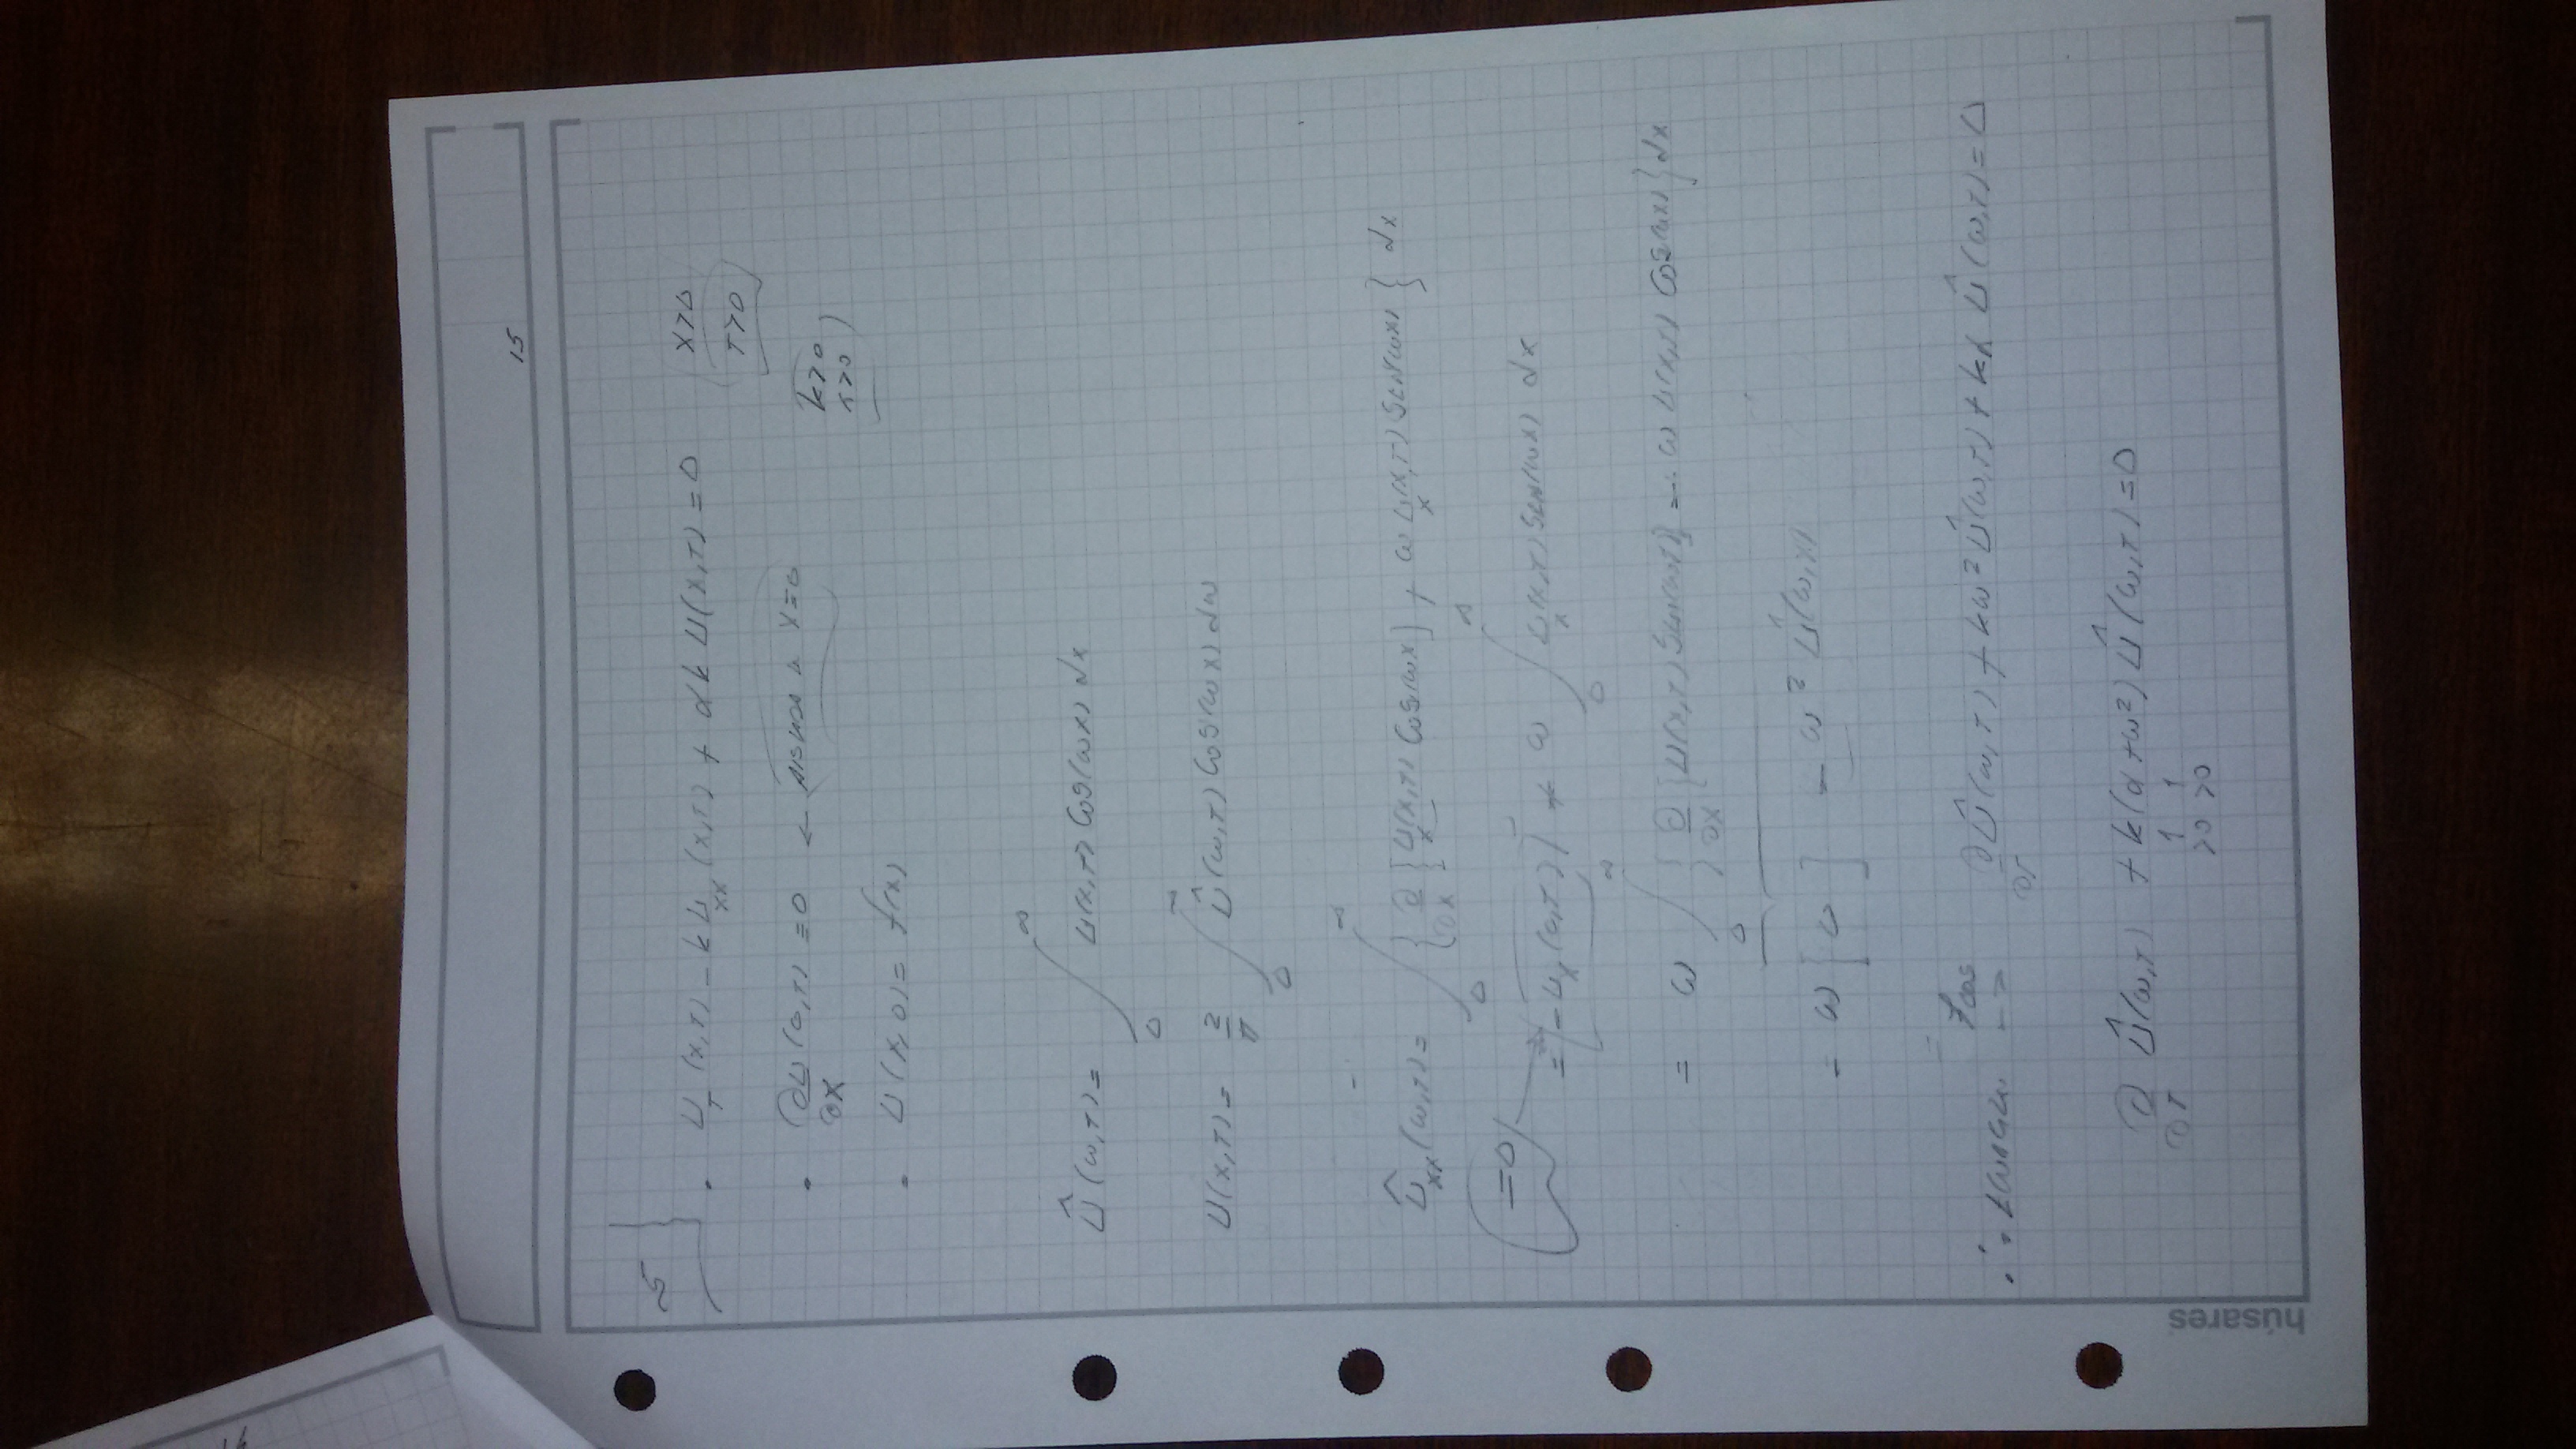 15
5
• U_T(x,T) - k U_xx(x,T) + αk U(x,T) = 0 (x>0
T>0)
• ∂U/∂x (0,T) = 0 ← AISLADA A X=0
k>0
• U(x,0) = f(x)
Û(ω,T) = ∫_0^∞ U(x,T) Cos(ωx) dx
U(x,T) = 2/π ∫_0^∞ Û(ω,T) Cos(ωx) dω
Û_xx(ω,T) = ∫_0^∞ { ∂/∂x [U_x(x,T) Cos(ωx)] + ω U_x(x,T) Sen(ωx) } dx
=0
= - U_x(0,T) + ω ∫_0^∞ U_x(x,T) Sen(ωx) dx
= ω ∫_0^∞ { ∂/∂x [U(x,T) Sen(ωx)] - ω U(x,T) Cos(ωx) } dx
= ω [0] - ω² Û(ω,x)
∂/∂T Û(ω,T) + kω² Û(ω,T) + kα Û(ω,T) = 0
∂/∂T Û(ω,T) + k(α+ω²) Û(ω,T) = 0
>0 >0
húsares